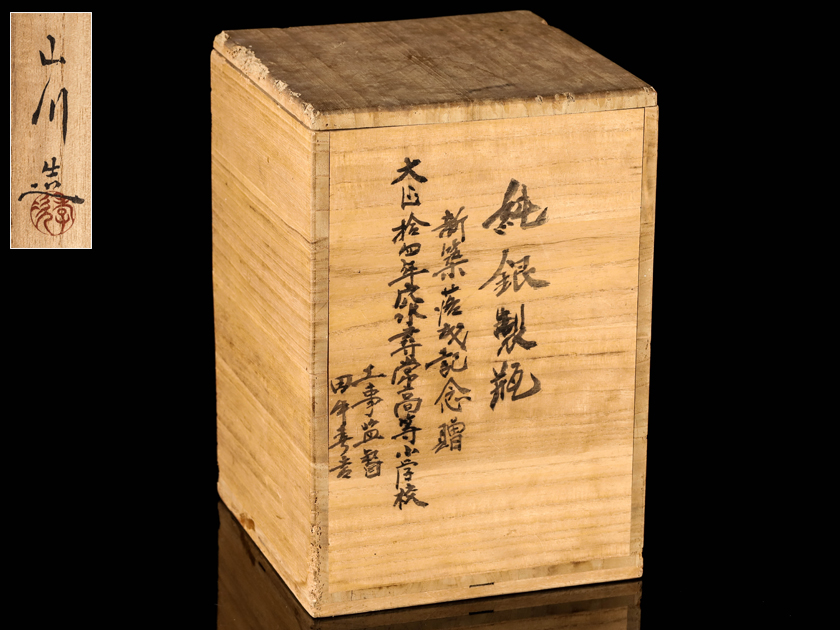 純銀製瓶
新築落成記念贈
大正拾四年広水尋常高等小学校
工事監督
田中寿吉
山川造
孝次